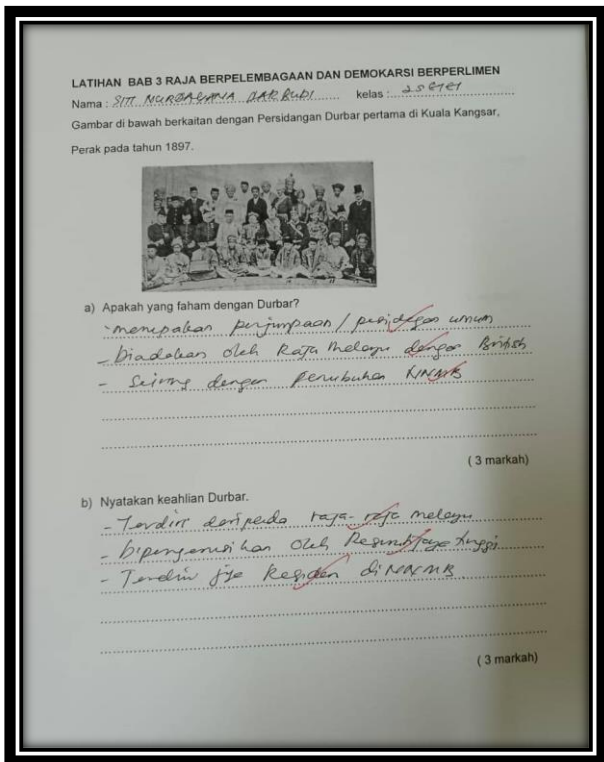 LATIHAN BAB 3 RAJA BERPELEMBAGAAN DAN DEMOKARSI BERPERLIMEN
Nama : SITI kelas :
Gambar di bawah berkaitan dengan Persidangan Durbar pertama di Kuala Kangsar,
Perak pada tahun 1897.
a) Apakah yang faham dengan Durbar?
- merupakan perjumpaan / umum
- Diadakan oleh Raja Melayu dengan British
- dengan penubuhan NNMB
( 3 markah)
b) Nyatakan keahlian Durbar.
- Terdiri daripada raja-raja melayu
- Dipengerusikan oleh
- Terdiri jge Residen di NNMB
( 3 markah)